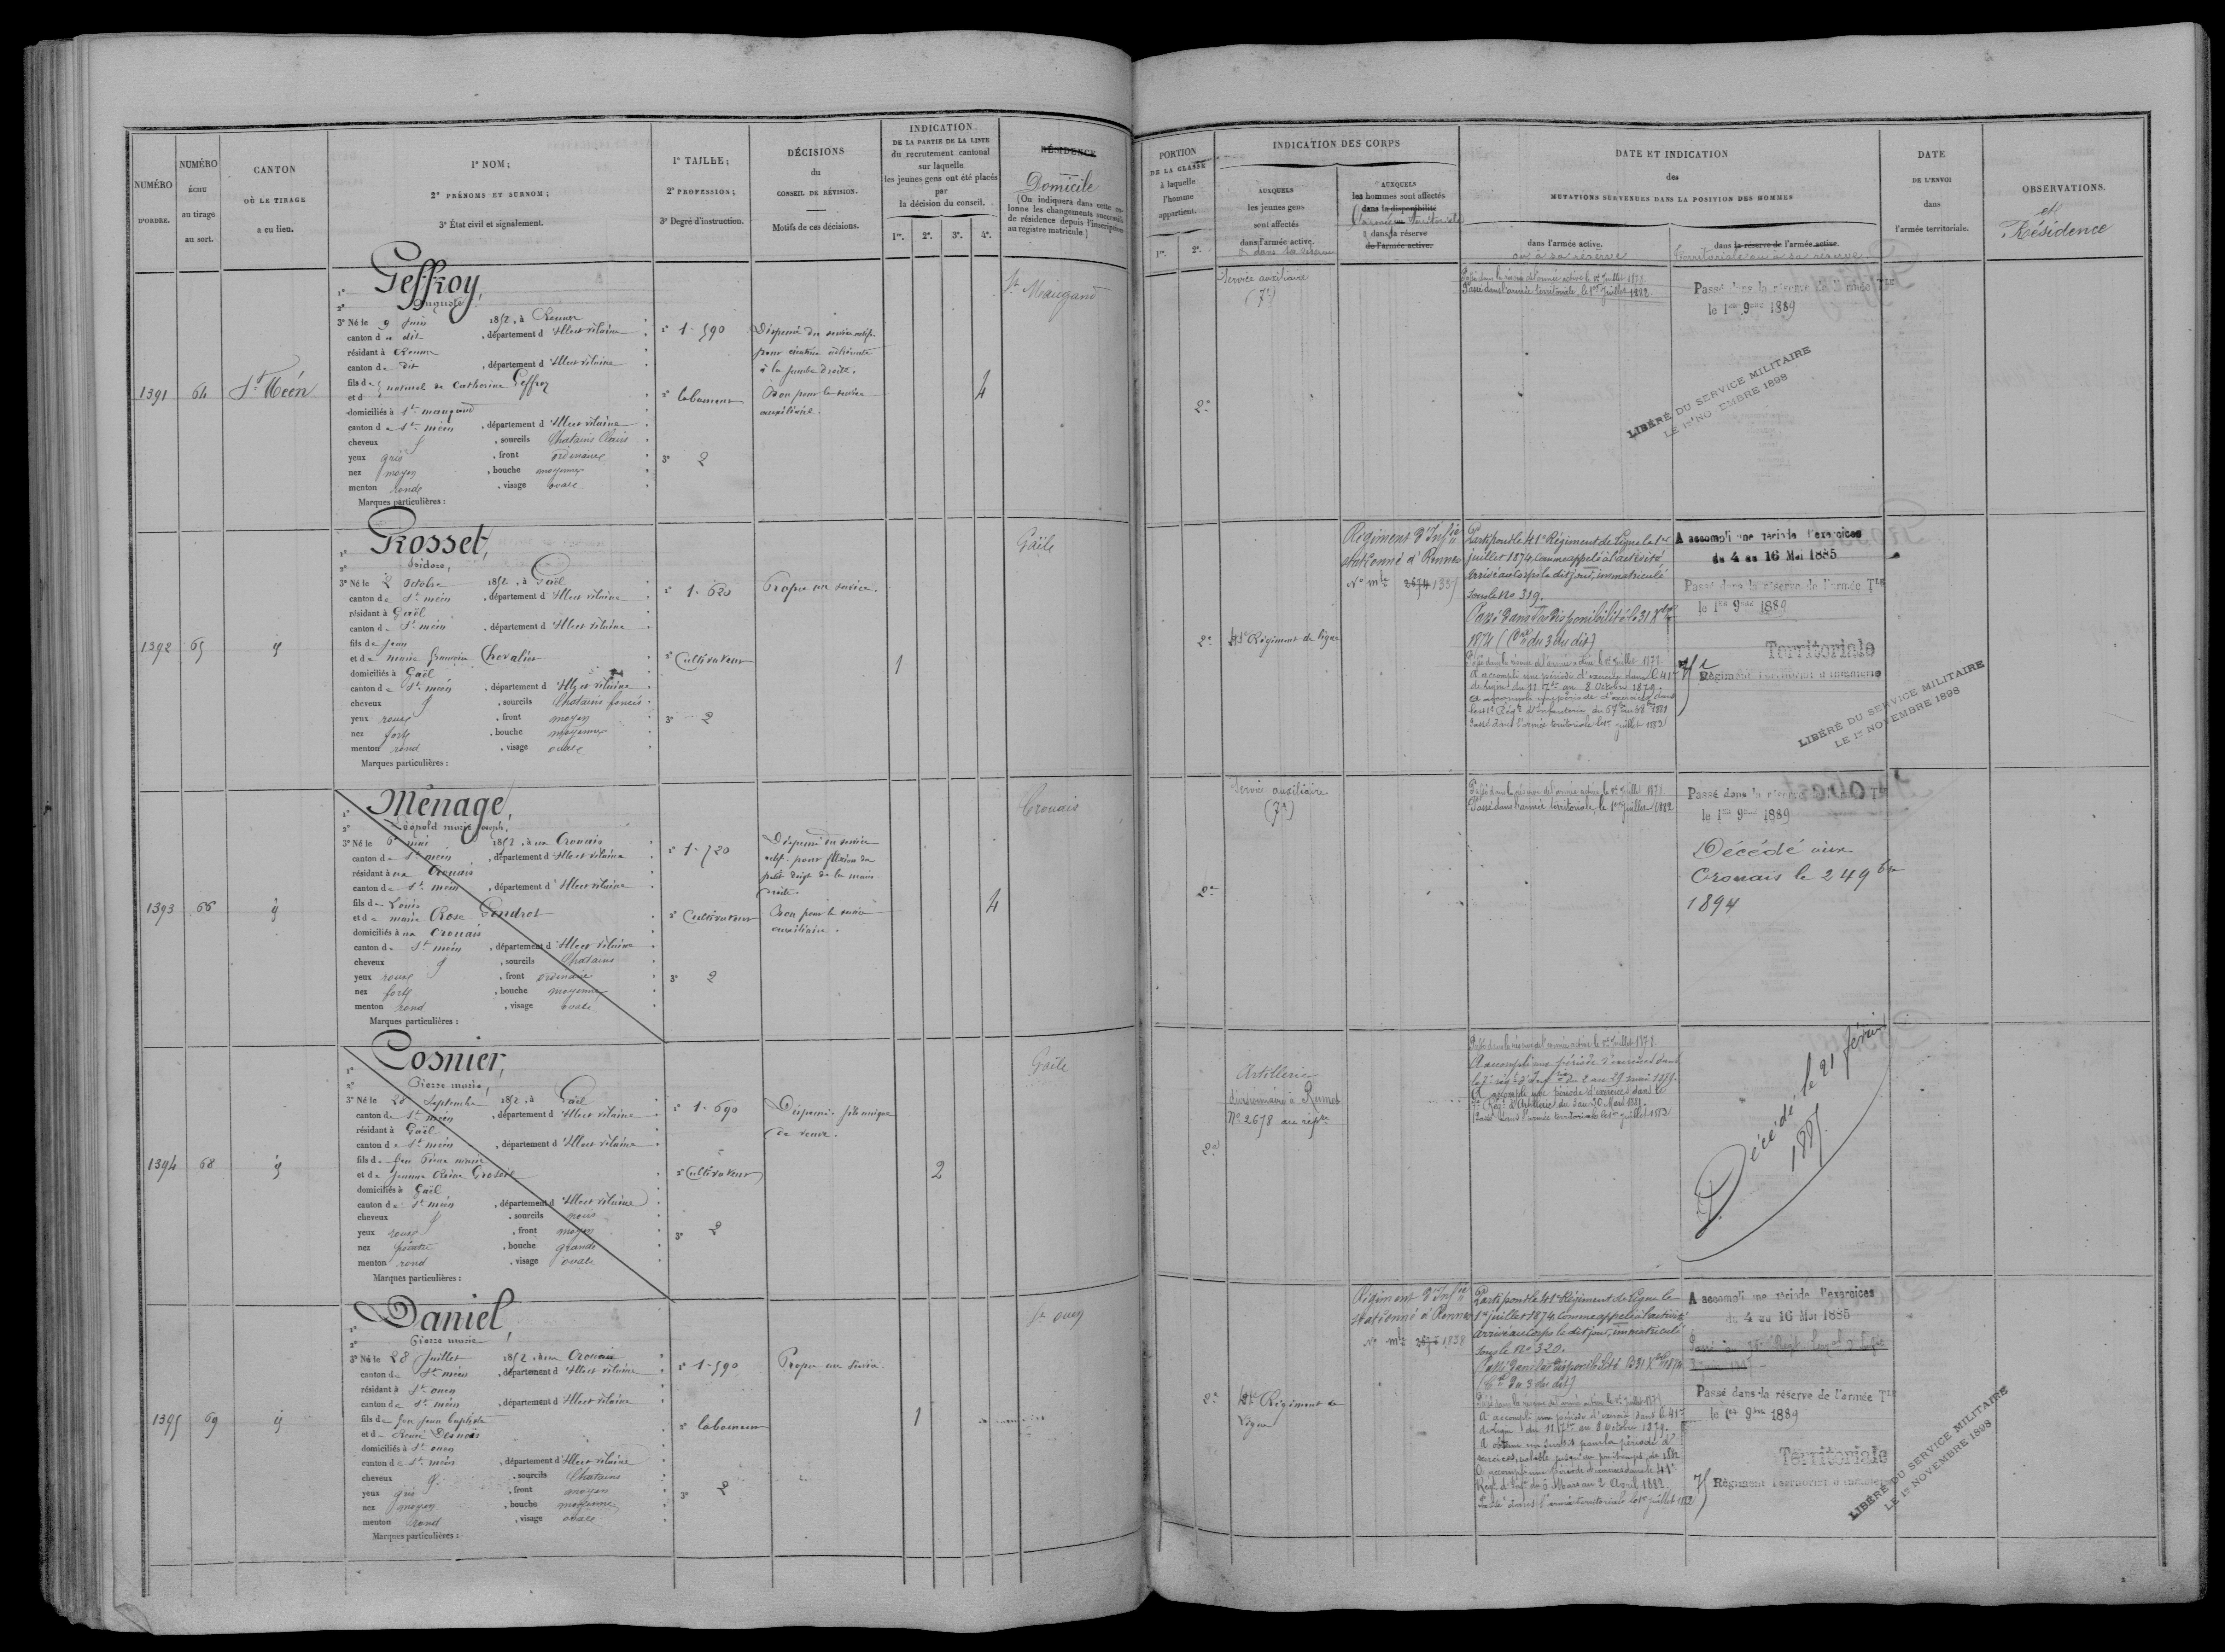 NUMÉRO
D'ORDRE.
NUMÉRO
ÉCHU
au tirage
au sort.
CANTON
OÙ LE TIRAGE
a eu lieu.
1° NOM;
2° PRÉNOMS ET SURNOM;
3° État civil et signalement.
1° TAILLE;
2° PROFESSION;
3° Degré d'instruction.
DÉCISIONS
du
CONSEIL DE RÉVISION.
Motifs de ces décisions.
INDICATION
DE LA PARTIE DE LA LISTE
du recrutement cantonal
sur laquelle
les jeunes gens ont été placés
par
la décision du conseil.
1re. 2e. 3e. 4e.
RÉSIDENCE
Domicile
(On indiquera dans cette colonne les changements successifs
de résidence depuis l'inscription
au registre matricule)
1391
64
St Méen
Geffroy,
Auguste
3° Né le 9 Juin 1852, à Rennes
canton d u dit, département d'Ille et vilaine
résidant à Rennes
canton de dit, département d'Ille et vilaine
fils de naturel de Catherine Geffroy
et d
domiciliés à St maugand
canton de St méen, département d'Ille et vilaine
cheveux, sourcils Chatains Clairs
yeux gris, front ordinaire
nez moyen, bouche moyenne
menton ronde, visage ovale
Marques particulières :
1° 1.590
2° laboureur
3° 2
Dispensé du service actif
à la jambe droite.
Bon pour le service
auxiliaire.
4
St Maugand
1392
65
Rosset,
Isidore,
3° Né le 2 Octobre 1852, à Gaël
canton de St méen, département d'Ille et vilaine
résidant à Gaël
canton de St méen, département d'Ille et vilaine
fils de Jean
et de marie françoise Chevalier
domiciliés à Gaël
canton de St méen, département d'Ille et vilaine
cheveux, sourcils Chatains foncés
yeux roux, front moyen
nez fort, bouche moyenne
menton rond, visage ovale
Marques particulières :
1° 1.620
2° Cultivateur
3° 2
Propre au service.
1
Gaële
1393
66
Ménage,
Léopold marie Joseph.
3° Né le 6 mai 1852, à au Crouais
canton de St méen, département d'Ille et vilaine
résidant à au Crouais
canton de St méen, département d'Ille et vilaine
fils de Louis
et de marie Rose Gendrot
domiciliés à au Crouais
canton de St méen, département d'Ille et vilaine
cheveux, sourcils Chatains
yeux roux, front ordinaire
nez fort, bouche moyenne
menton rond, visage ovale
Marques particulières :
1° 1.720
2° Cultivateur
3° 2
Dispensé du service
actif pour flexion du
petit doigt de la main
droite.
Bon pour le service
auxiliaire.
4
Crouais
1394
68
Cosnier,
Pierre marie,
3° Né le 28 Septembre 1852, à Gaël
canton de St méen, département d'Ille et vilaine
résidant à Gaël
canton de St méen, département d'Ille et vilaine
fils de feu Pierre marie
et de Jeanne Reine
domiciliés à Gaël
canton de St méen, département d'Ille et vilaine
cheveux, sourcils noirs
yeux roux, front moyen
nez, bouche grande
menton rond, visage ovale
Marques particulières :
1° 1.690
2° Cultivateur
3° 2
Dispensé. fils unique
de veuve.
2
Gaële
1395
69
Daniel,
Pierre marie
3° Né le 28 Juillet 1852, à au Crouais
canton de St méen, département d'Ille et vilaine
résidant à St ouen
canton de St méen, département d'Ille et vilaine
fils de feu Jean baptiste
et de Renée
domiciliés à St ouen
canton de St méen, département d'Ille et vilaine
cheveux, sourcils Chatains
yeux gris, front moyen
nez moyen, bouche moyenne
menton rond, visage ovale
Marques particulières :
1° 1.590
2° laboureur
3° 2
Propre au service
1
St ouen
PORTION
DE LA CLASSE
à laquelle
l'homme
appartient.
1re. 2e.
INDICATION DES CORPS
AUXQUELS
les jeunes gens
sont affectés
dans l'armée active.
& dans la réserve
AUXQUELS
les hommes sont affectés
dans la disponibilité
l'armée territoriale
& dans sa réserve
de l'armée active.
DATE ET INDICATION
des
MUTATIONS SURVENUES DANS LA POSITION DES HOMMES
dans l'armée active.
ou à sa réserve
dans la réserve de l'armée active.
territoriale ou à sa réserve.
DATE
DE L'ENVOI
dans
l'armée territoriale.
OBSERVATIONS.
et
Résidence
2e
Service auxiliaire
(7e)
Passé dans la réserve de l'armée active le 1er Juillet 1879
Passé dans l'armée territoriale, le 1er Juillet 1882.
Passé dans la réserve de l'armée Tle
le 1er 9bre 1889
LIBÉRÉ DU SERVICE MILITAIRE
LE 1er NOVEMBRE 1898
2e
41e Régiment de ligne
Régiment d'Infie
stationné à Rennes
No mle 2674 1337
Parti pour le 41e Régiment de Ligne le 1er
juillet 1874, comme appelé à l'activité,
arrivé au Corps le dit jour, immatriculé
sous le No 319.
Passé dans la disponibilité le 31 Xbre
1874 (Con du 3 du dit)
Passé dans la réserve de l'armée active le 1er Juillet 1879
A accompli une période d'exercice dans le 41e
de ligne du 11 7bre au 8 Octobre 1879.
Passé dans l'armée territoriale le 1er juillet 1882
A accompli une période d'exercices
du 4 au 16 Mai 1885
Passé dans la réserve de l'armée Tle
le 1er 9bre 1889
Territoriale
Régiment Territorial d'Infanterie
LIBÉRÉ DU SERVICE MILITAIRE
LE 1er NOVEMBRE 1898
2e
Service auxiliaire
(7e)
Passé dans la réserve de l'armée active, le 1er Juillet 1879
Passé dans l'armée territoriale, le 1er Juillet 1882
Passé dans la réserve de l'armée Tle
le 1er 9bre 1889
Décédé aux
Crouais le 24 9bre
1894
2e
Artillerie
stationnaire à Rennes
No 2678 au répre
Passé dans la réserve de l'armée active le 1er Juillet 1879
A accompli une période d'exercices dans
A accompli une période d'exercices dans le
Passé dans l'armée territoriale le 1er juillet 1882
Décédé le 21 février
1885.
2e
41e Régiment de
Ligne
Régiment d'Infie
stationné à Rennes
No mle 2675 1338
Parti pour le 41e Régiment de Ligne le
1er juillet 1874, comme appelé à l'activité
arrivé au Corps le dit jour, immatriculé
sous le No 320.
Passé dans la disponibilité le 31 Xbre 1874
(Con du 3 du dit)
Passé dans la réserve de l'armée active le 1er Juillet 1879
A accompli une période d'exercice dans le 41e
de ligne du 11 7bre au 8 Octobre 1879.
A obtenu un sursis pour la période d'
exercices, valable jusqu'au printemps de 1882
A accompli une période d'exercices dans le 41e
Régt d'Infie du 6 Mars au 2 Avril 1882.
Passé dans l'armée territoriale le 1er juillet 1882
A accompli une période d'exercices
du 4 au 16 Mai 1885
Passé dans la réserve de l'armée Tle
le 1er 9bre 1889
Territoriale
Régiment Territorial d'Infanterie
LIBÉRÉ DU SERVICE MILITAIRE
LE 1er NOVEMBRE 1898